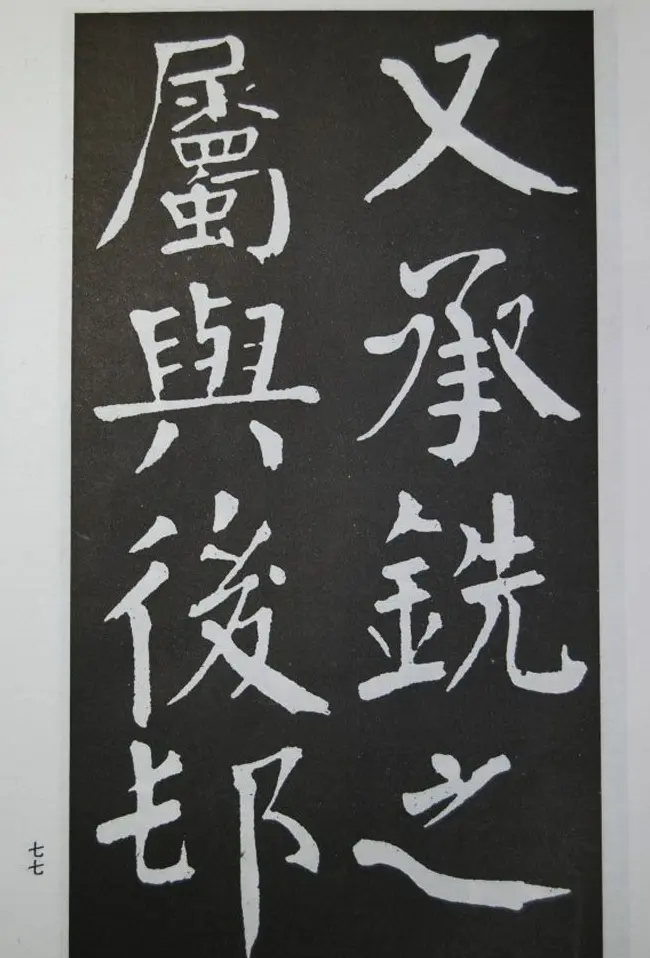 又承銑之
屬與後邨
七七